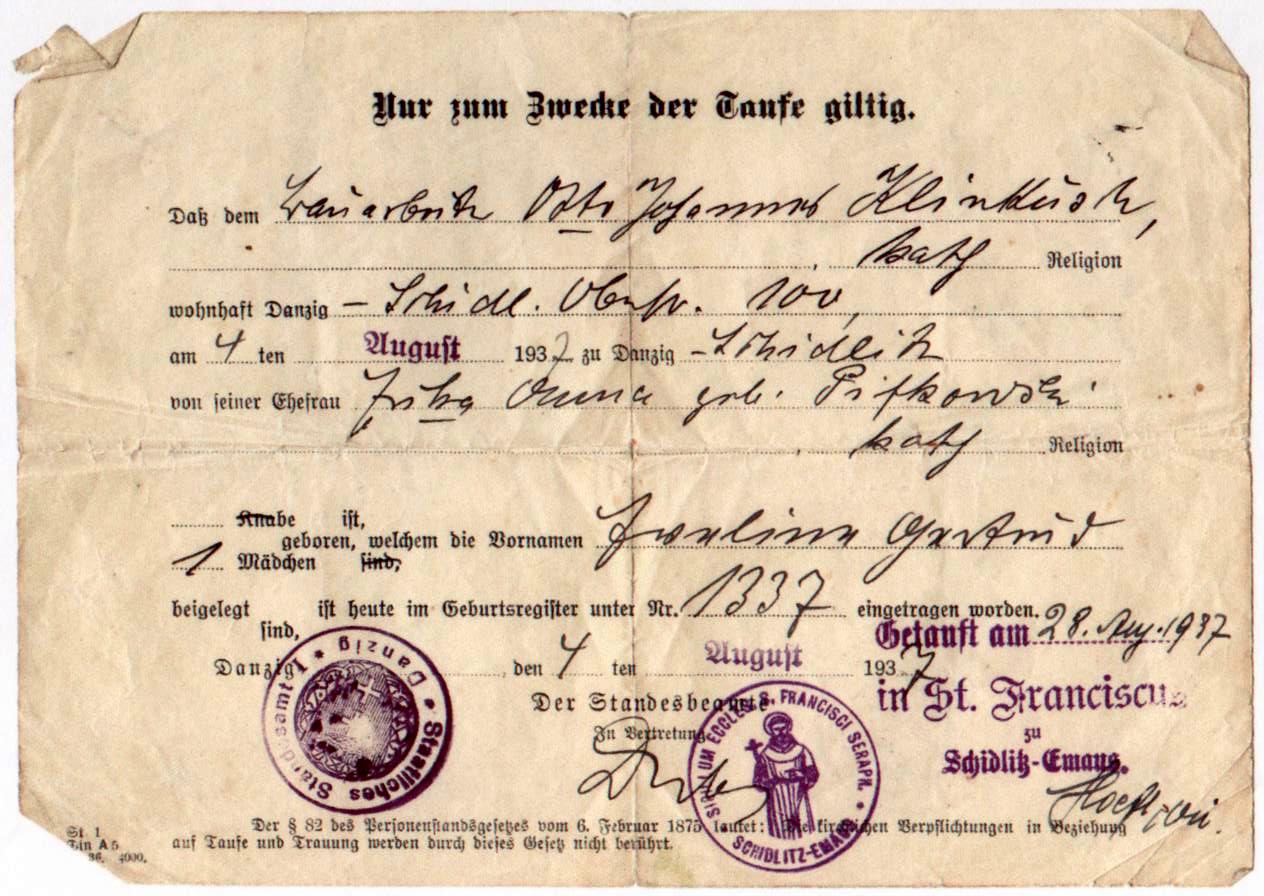 Nur zum Zwecke der Taufe giltig.
Daß dem Bauarbeiter Otto Johannes Klinkusch,
, kath Religion
wohnhaft Danzig – Schidl. Oberstr. 100,
am 4 ten August 1937 zu Danzig - Schidlitz
von seiner Ehefrau Anna geb. Pifkowski
, kath Religion
Knabe ist,
geboren, welchem die Vornamen Gertrud
1 Mädchen sind,
beigelegt ist heute im Geburtsregister unter Nr. 1337 eingetragen worden.
sind,
Getauft am 28. Aug. 1937
Danzig, den 4 ten August 1937
in St. Franciscus
zu
Schidlitz-Emaus.
Der Standesbeamte
In Vertretung
Staatliches Standesamt 1 * Danzig *
SIGILLUM ECCLES. S. FRANCISCI SERAPH. * SCHIDLITZ-EMAUS *
Der § 82 des Personenstandsgesetzes vom 6. Februar 1875 lautet: Die kirchlichen Verpflichtungen in Beziehung
auf Taufe und Trauung werden durch dieses Gesetz nicht berührt.
St. 1
Din A 5
36. 4000.